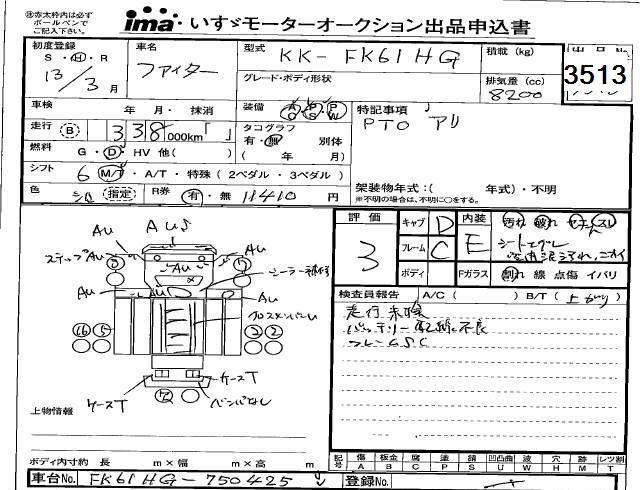 ㊟赤太枠内は必ず
ボールペンで
ご記入下さい。
ima いすゞモーターオークション出品申込書
初度登録
S・H・R
13/3月
車名
ファイター
型式
KK-FK61HG
グレード・ボディ形状
積載(kg)
排気量(cc)
8200
3513
車検 年 月・抹消
走行 B 338,000km「 」
燃料 G・D・HV 他( )
シフト 6 M/T・A/T・特殊(2ペダル・3ペダル)
色 指定 R券 有・無 11410円
装備 AC PS PW
タコグラフ
有・無 別体
( 年 月)
特記事項
PTO アリ
架装物年式:( 年式)・不明
※不明の場合は、不明に○をする。
評価
3
キャブ D
フレーム C
ボディ
内装 E
汚れ 破れ コゲ スレ
Fガラス 割れ 線 点傷 イバリ
検査員報告 A/C( ) B/T(上がり)
走行未除
バッテリー
フレームS、C
Au
AuS
ステップAu
Au
Au
Au
Au
シーラー
ケースT
ケースT
バンパなし
上物情報
ボディ内寸約 長 m×幅 m×高 m
記号 傷A 板金B 腐C 塗P 錆S 凹凸曲U 波W 穴H 跡M レンズ割T
車台No. FK61HG-750425
登録No.